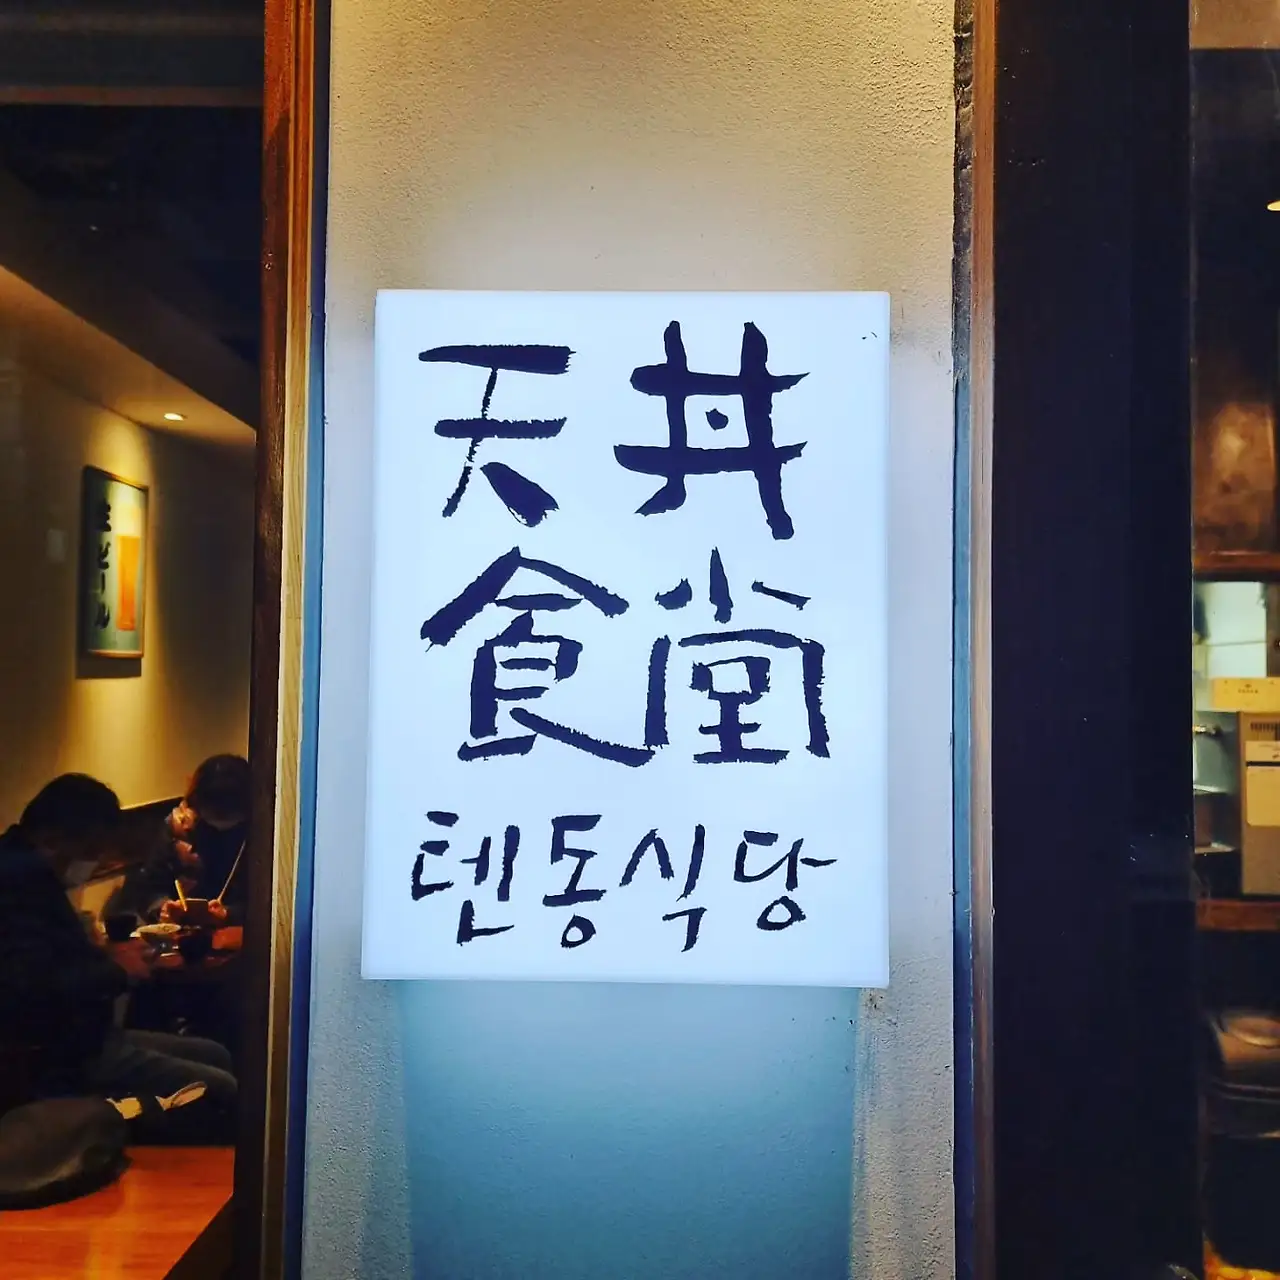 天丼
食堂
텐동식당